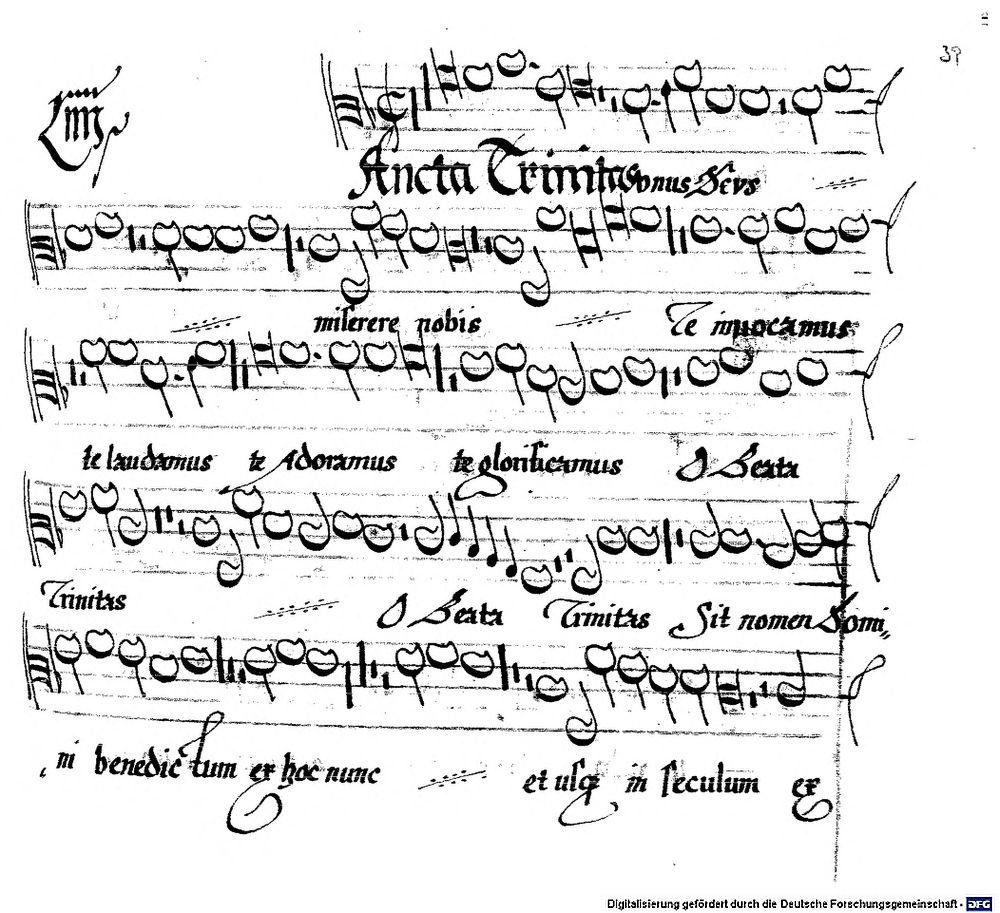 39
Liiij
Ancta Trinitas vnus Deus
miserere nobis Te inuocamus
te laudamus te Adoramus te glorificamus O Beata
Trinitas O Beata Trinitas Sit nomen Domi,,
ni benedictum ex hoc nunc et usq in seculum ex
Digitalisierung gefördert durch die Deutsche Forschungsgemeinschaft - DFG